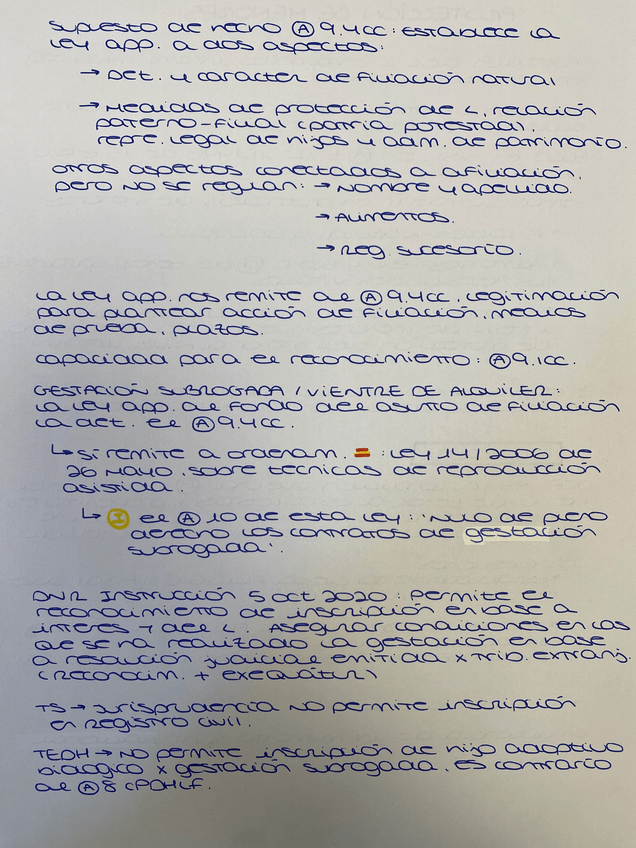 SUPUESTO DE HECHO Ⓐ 9.4CC: ESTABLECE LA
LEY APP. A DOS ASPECTOS:
→ DET. Y CARÁCTER DE FILIACIÓN NATURAL
→ MEDIDAS DE PROTECCIÓN DE <, RELACIÓN
PATERNO-FILIAL (PATRIA POTESTAD),
REPRE. LEGAL DE HIJOS Y ADM. DE PATRIMONIO.
OTROS ASPECTOS CONECTADOS A FILIACIÓN,
PERO NO SE REGULAN: → NOMBRE Y APELLIDO.
→ ALIMENTOS.
→ REG. SUCESORIO.
LA LEY APP. NOS REMITE AL Ⓐ 9.4CC, LEGITIMACIÓN
PARA PLANTEAR ACCIÓN DE FILIACIÓN, MEDIOS
DE PRUEBA, PLAZOS.
CAPACIDAD PARA EL RECONOCIMIENTO: Ⓐ 9.1CC.
GESTACIÓN SUBROGADA / VIENTRE DE ALQUILER:
LA LEY APP. AL FONDO DEL ASUNTO DE FILIACIÓN
LA DET. EL Ⓐ 9.4CC.
↳ SI REMITE A ORDENAM. = : LEY 14/2006 DE
26 MAYO, SOBRE TECNICAS DE REPRODUCCIÓN
ASISTIDA.
↳ Ⓘ EL Ⓐ 10 DE ESTA LEY: 'NULO DE PLENO
DERECHO LOS CONTRATOS DE GESTACIÓN
SUBROGADA'.
INSTRUCCIÓN 5 OCT 2020: PERMITE EL
RECONOCIMIENTO DE INSCRIPCIÓN EN BASE A
INTERES DEL <. ASEGURAR CONDICIONES EN LAS
QUE SE HA REALIZADO LA GESTACIÓN EN BASE
A RESOLUCIÓN JUDICIAL EMITIDA X TRIB. EXTRANJ.
(RECONOCIM. + EXEQUÁTUR)
TS → JURISPRUDENCIA NO PERMITE INSCRIPCIÓN
EN REGISTRO CIVIL.
TEDH → NO PERMITE INSCRIPCIÓN DE HIJO ADOPTIVO
BIOLOGICO X GESTACIÓN SUBROGADA. ES CONTRARIO
AL Ⓐ 8